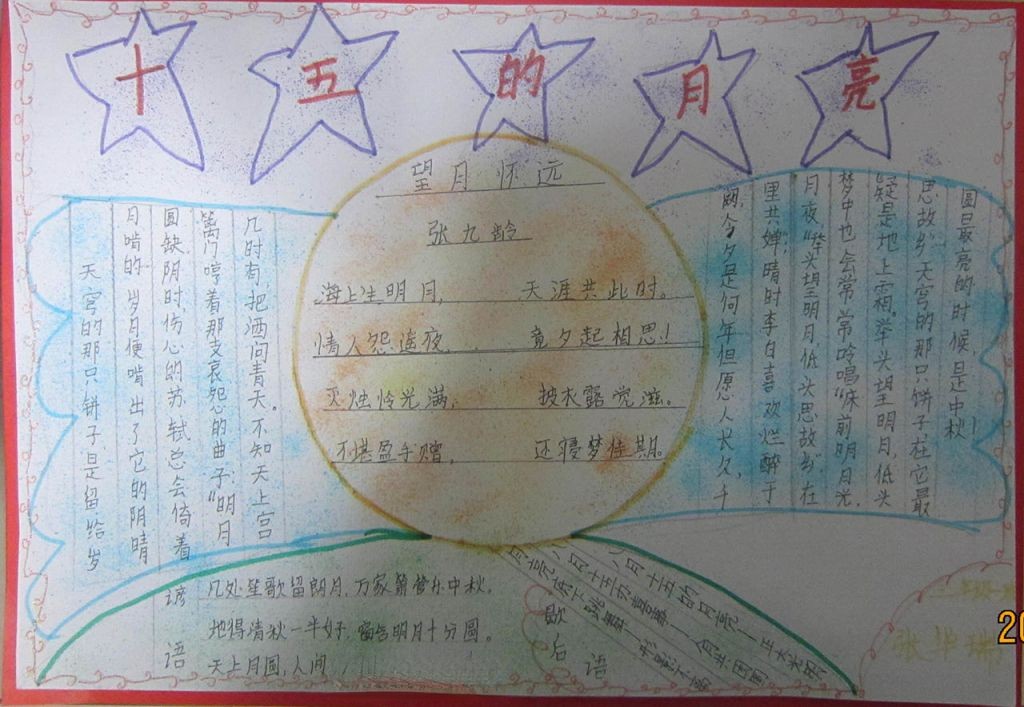 十五的月亮
望月怀远
张九龄
海上生明月, 天涯共此时。
情人怨连夜, 竟夕起相思!
灭烛怜光满, 披衣露觉滋。
不堪盈手赠, 还寝梦佳期。
天宫的那只饼子,是留给岁
月啃的。岁月便啃出了它的阴晴
圆缺。阴时,伤心的苏轼总会倚着
篱门哼着那支哀怨的曲子:“明月
几时有,把酒问青天。不知天上宫
阙,今夕是何年但愿人长久,千
里共婵”,晴时李白喜欢烂醉于
月夜“举头望明月,低头思故乡”在
梦中也会常常吟唱“床前明月光,
疑是地上霜。举头望明月,低头
思故乡”天宫的那只饼子在它最
圆最亮的时候,是中秋!
谚语
几处笙歌留朗月,万家箫管乐中秋。
地得清秋一半好,窗含明月十分圆。
天上月圆,人间
歇后语
八月十五的月亮—正大光明
八月十五办喜事—
月亮底下跳舞—形影不离
张华
20